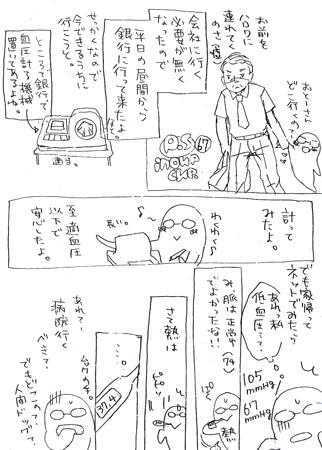 お前を
ハロワに
連れてく
のさ
おとーさん
どこ行くの〜？
会社に行く
必要が無く
なったので
平日の昼間から
銀行に行って来たよ。
せっかくなので
今できるうちに
行こうと。
ところで銀行で
血圧計る機械
置いてあるよね。
適当。
P.S
67
計って
みたよ。
われ〜く♪
長い。
至適血圧
以下で
安心したよ。
でも家帰って
ネットでみたら
あれっ私
低血圧…？
105
mmHg
67
mmHg
み、脈は正常中
(74)
でよかったな!!
熱
さて熱は
ピピッ
…。
37.4
あれ〜？
病院行く
べき？
でもどこの
人間ドック？